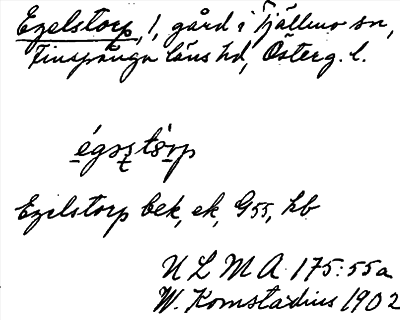 Ezelstorp, 1, gård i Tjällmo sn,
Finspånga läns hd, Österg. l.
Ezelstorp bek, ek, G55, hb
ULMA 175:55a
W. Komstadius 1902